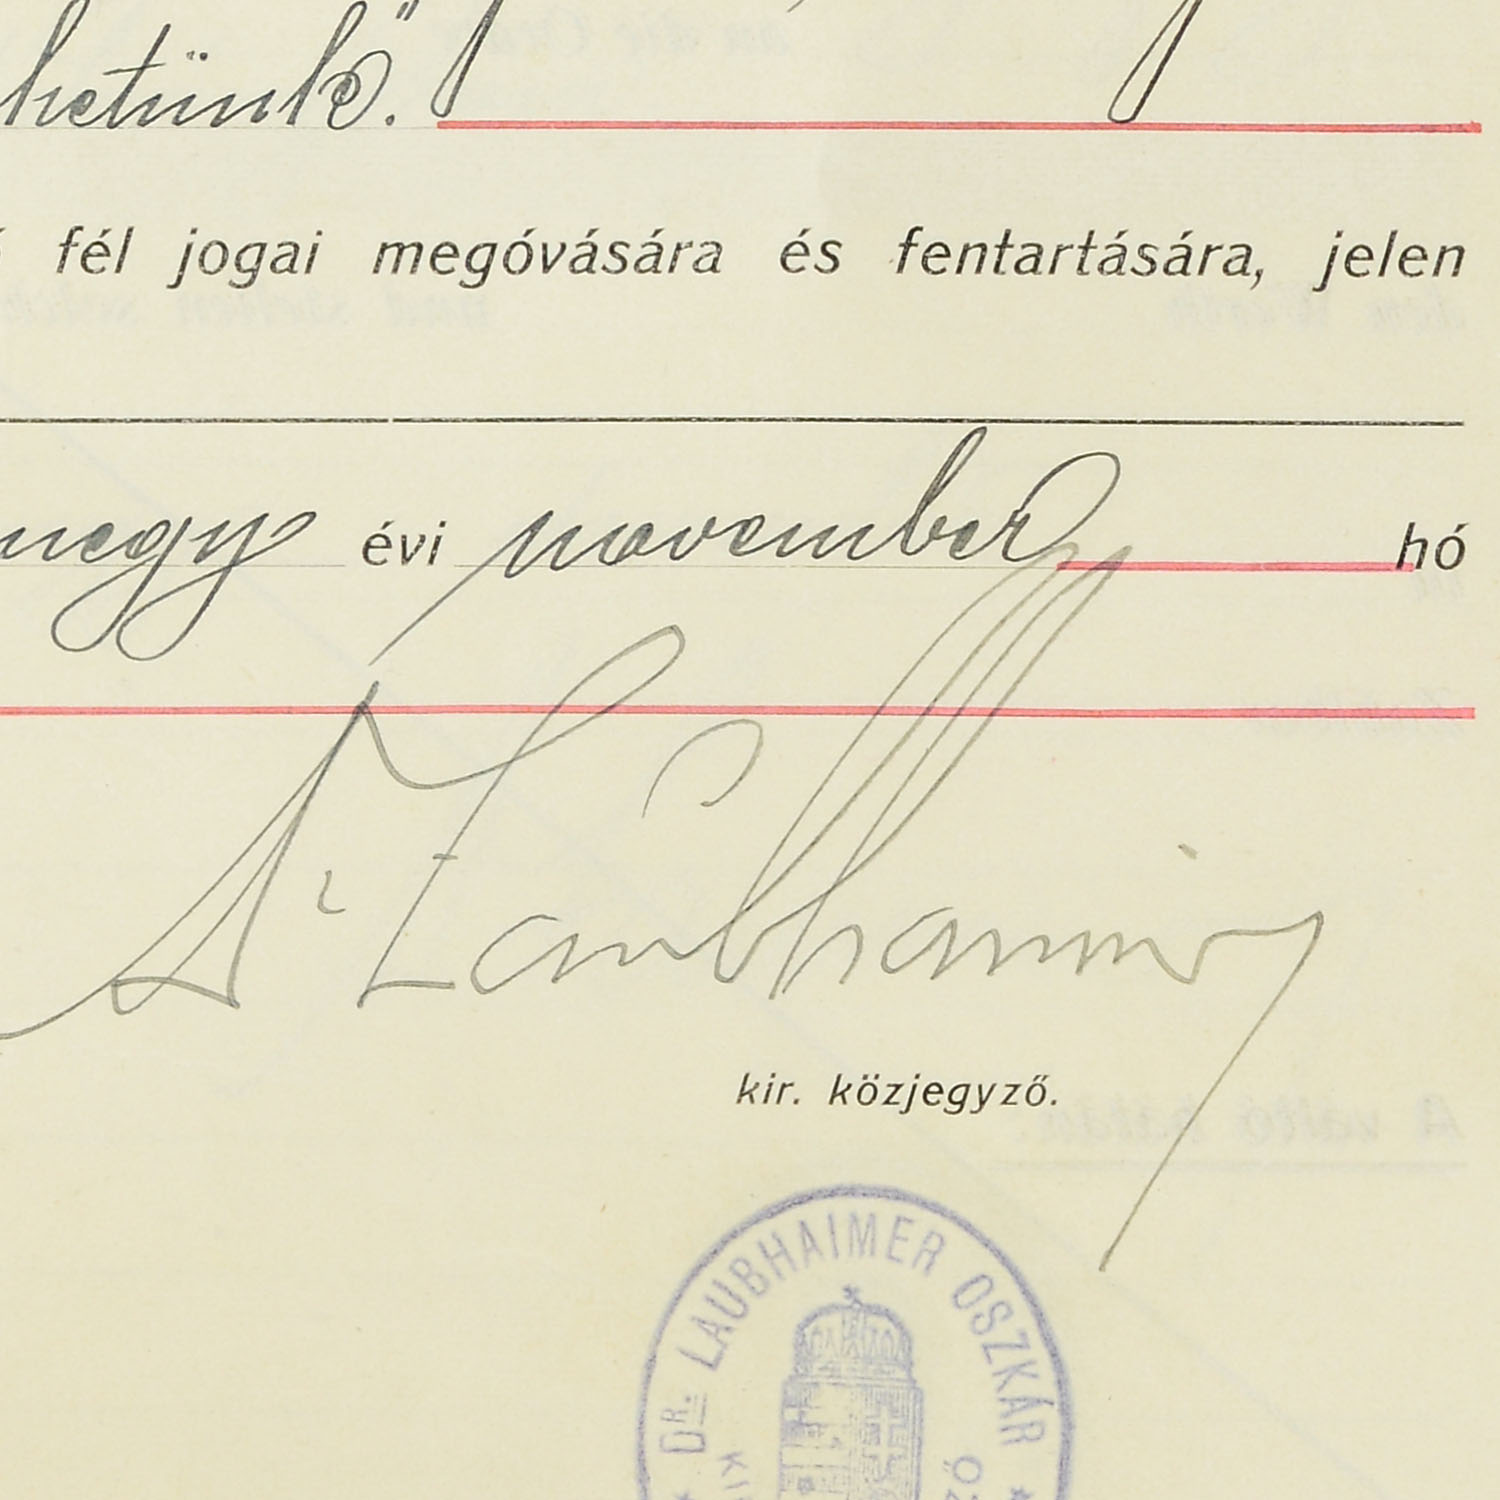 hetünk."
fél jogai megóvására és fentartására, jelen
negy évi november hó
Dr Laubhaimer
kir. közjegyző.
DR. LAUBHAIMER OSZKÁR